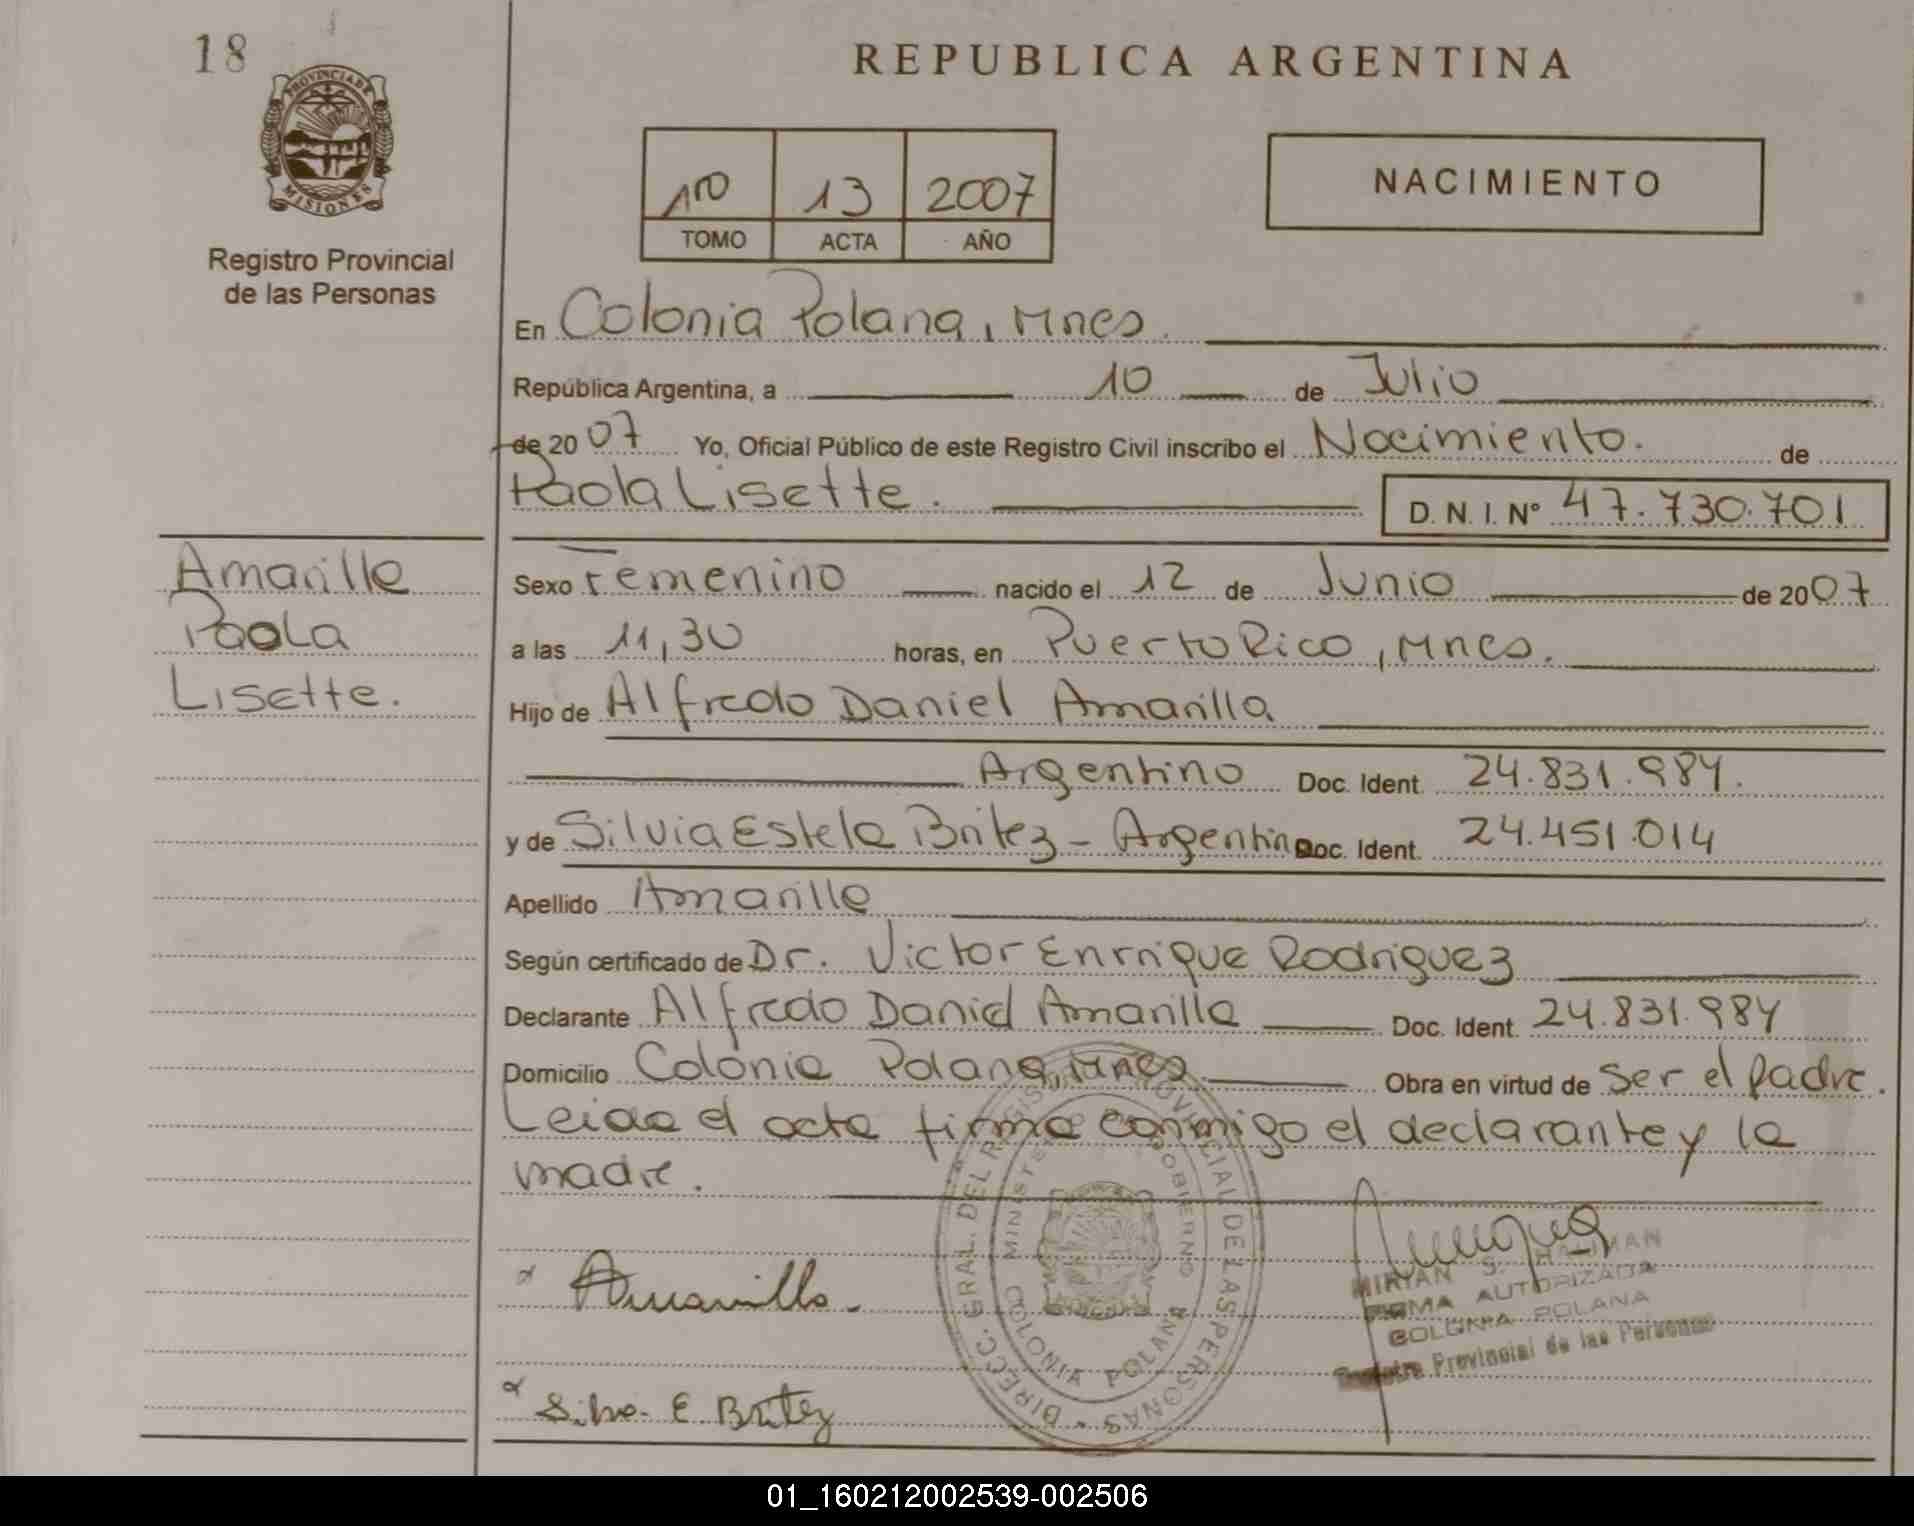 18
PROVINCIA DE
MISIONES
Registro Provincial
de las Personas
REPUBLICA ARGENTINA
1ro 13 2007
TOMO ACTA AÑO
NACIMIENTO
En Colonia Polana, Mnes.
República Argentina, a 10 de Julio
de 2007 Yo, Oficial Público de este Registro Civil inscribo el Nacimiento. de
Paola Lisette.
D. N. I. Nº 47.730.701
Amarilla
Paola
Lisette.
Sexo Femenino nacido el 12 de Junio de 2007
a las 11,30 horas, en Puerto Rico, Mnes.
Hijo de Alfredo Daniel Amarilla
Argentino Doc. Ident. 24.831.984.
y de Silvia Estela Britez - Argentina Doc. Ident. 24.451.014
Apellido Amarilla
Según certificado de Dr. Victor Enrrique Rodriguez
Declarante Alfredo Daniel Amarilla Doc. Ident. 24.831.984
Domicilio Colonia Polana, Mnes. Obra en virtud de ser el padre.
Leida el acta firma conmigo el declarante y la
madre.
Amarilla.
Silva. E. Britez
DIRECC. GRAL. DEL REGISTRO PROVINCIAL DE LAS PERSONAS
MINISTERIO GOBIERNO
COLONIA POLANA
MIRYAN S.
FIRMA AUTORIZADA
COLONIA POLANA
Registro Provincial de las Personas
01_160212002539-002506